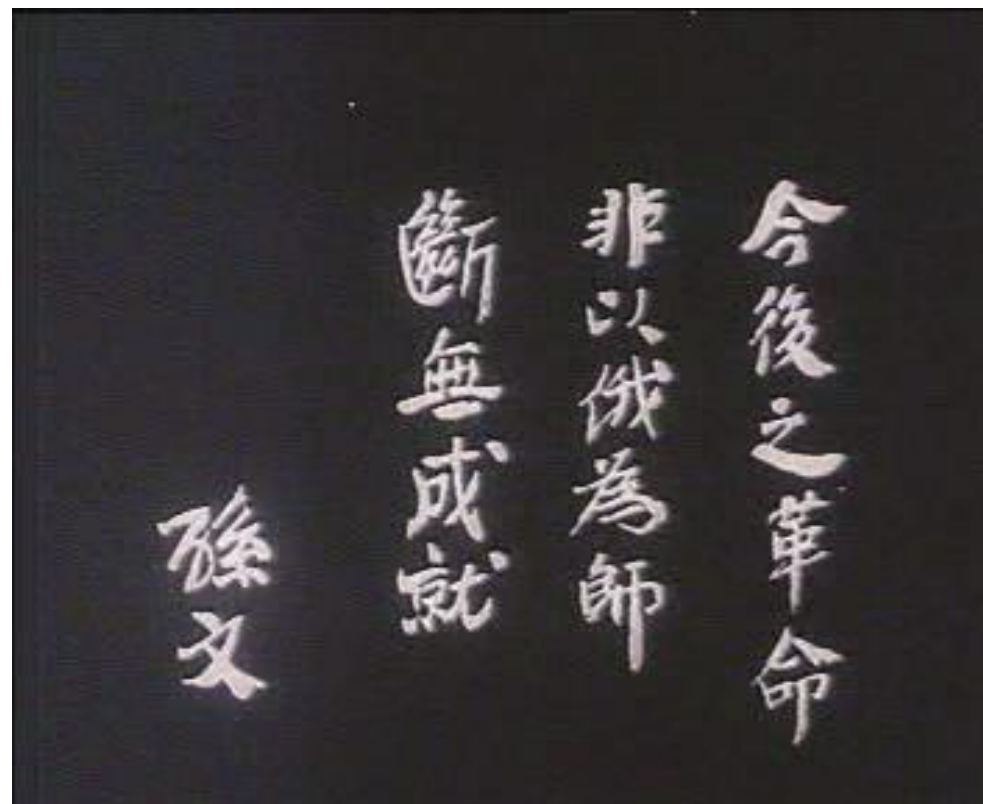 今後之革命
非以俄為師
斷無成就
孫文